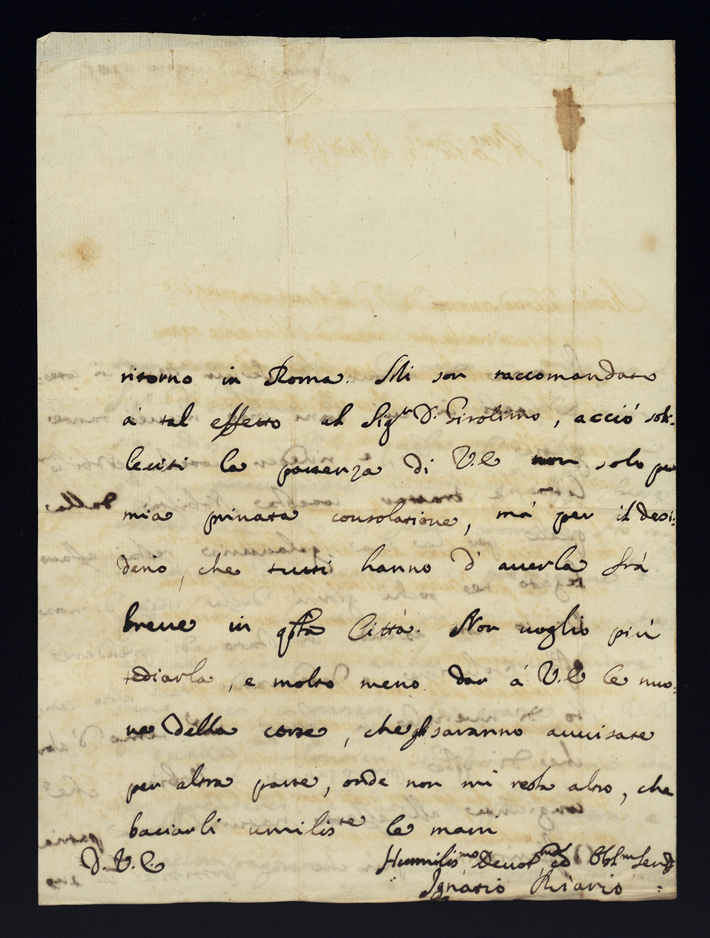 ritorno in Roma. Mi son raccomandato
à tal effetto al Sig.re D. Girolimo, acciò sol-
leciti la partenza di V.E non solo per
mia privata consolatione, mà per il desi-
derio, che tutti hanno d'averla frà
breve in q.sta Città. Non voglio più
tediarla, e molto meno dar à V.E le nuo-
ve della corte, che gli saranno avvisate
per altra parte, onde non mi resta altro, che
baciarli umilis.te le mani
D. V. E Humilis.mo Devot.mo ed Obbl.mo Serv.
Ignatio Riario